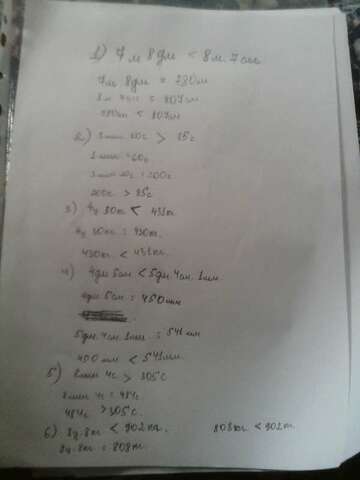 1) 7 м 8 дм < 8 м. 7 см
7 м 8 дм = 780 см
8 м 7 см = 807 см
780см < 807см
2) 3 мин 20с > 85с
1 мин = 60с
3 мин 20с = 200с
200с > 85с
3) 4ц 30кг < 451кг
4ц 30кг = 430кг.
430кг. < 451кг.
4) 4дм 5см < 5дм. 4см. 1мм
4дм 5см = 450мм
5дм. 4см. 1мм. = 541мм
450мм < 541мм.
5) 8мин 4с > 305с
8мин 4с = 484с
484с > 305с.
6) 8ц. 8кг < 902кг. 808кг < 902кг.
8ц. 8кг = 808кг.